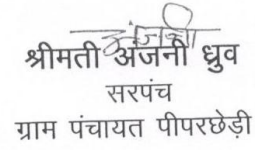 श्रीमती अंजनी ध्रुव
सरपंच
ग्राम पंचायत पीपरछेड़ी